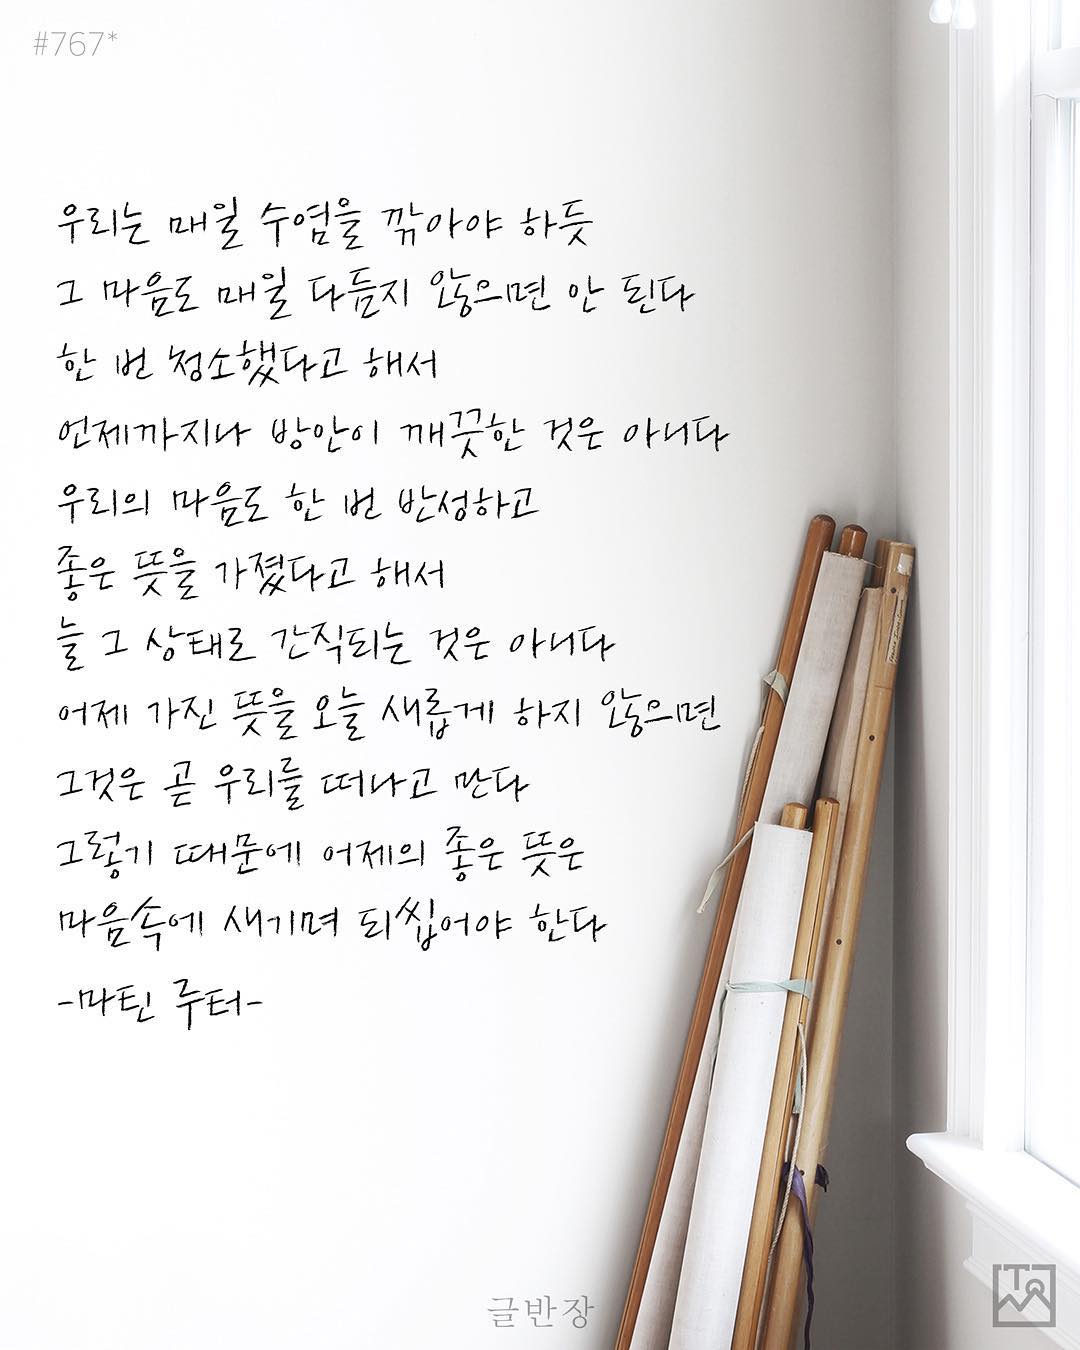 #767*
우리는 매일 수염을 깎아야 하듯
그 마음도 매일 다듬지 않으면 안 된다
한 번 청소했다고 해서
언제까지나 방안이 깨끗한 것은 아니다
우리의 마음도 한 번 반성하고
좋은 뜻을 가졌다고 해서
늘 그 상태로 간직되는 것은 아니다
어제 가진 뜻을 오늘 새롭게 하지 않으면
그것은 곧 우리를 떠나고 만다
그렇기 때문에 어제의 좋은 뜻은
마음속에 새기며 되씹어야 한다
-마틴 루터-
글반장